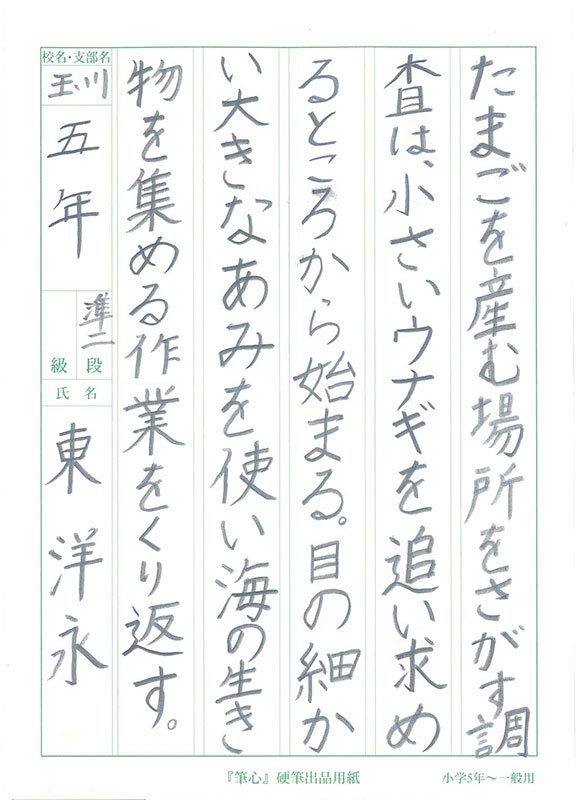 たまごを産む場所をさがす調
査は、小さいウナギを追い求め
るところから始まる。目の細か
い大きなあみを使い海の生き
物を集める作業をくり返す。
校名・支部名
玉川
五年
準二
段
級
氏名
東洋永
『筆心』硬筆出品用紙
小学5年～一般用